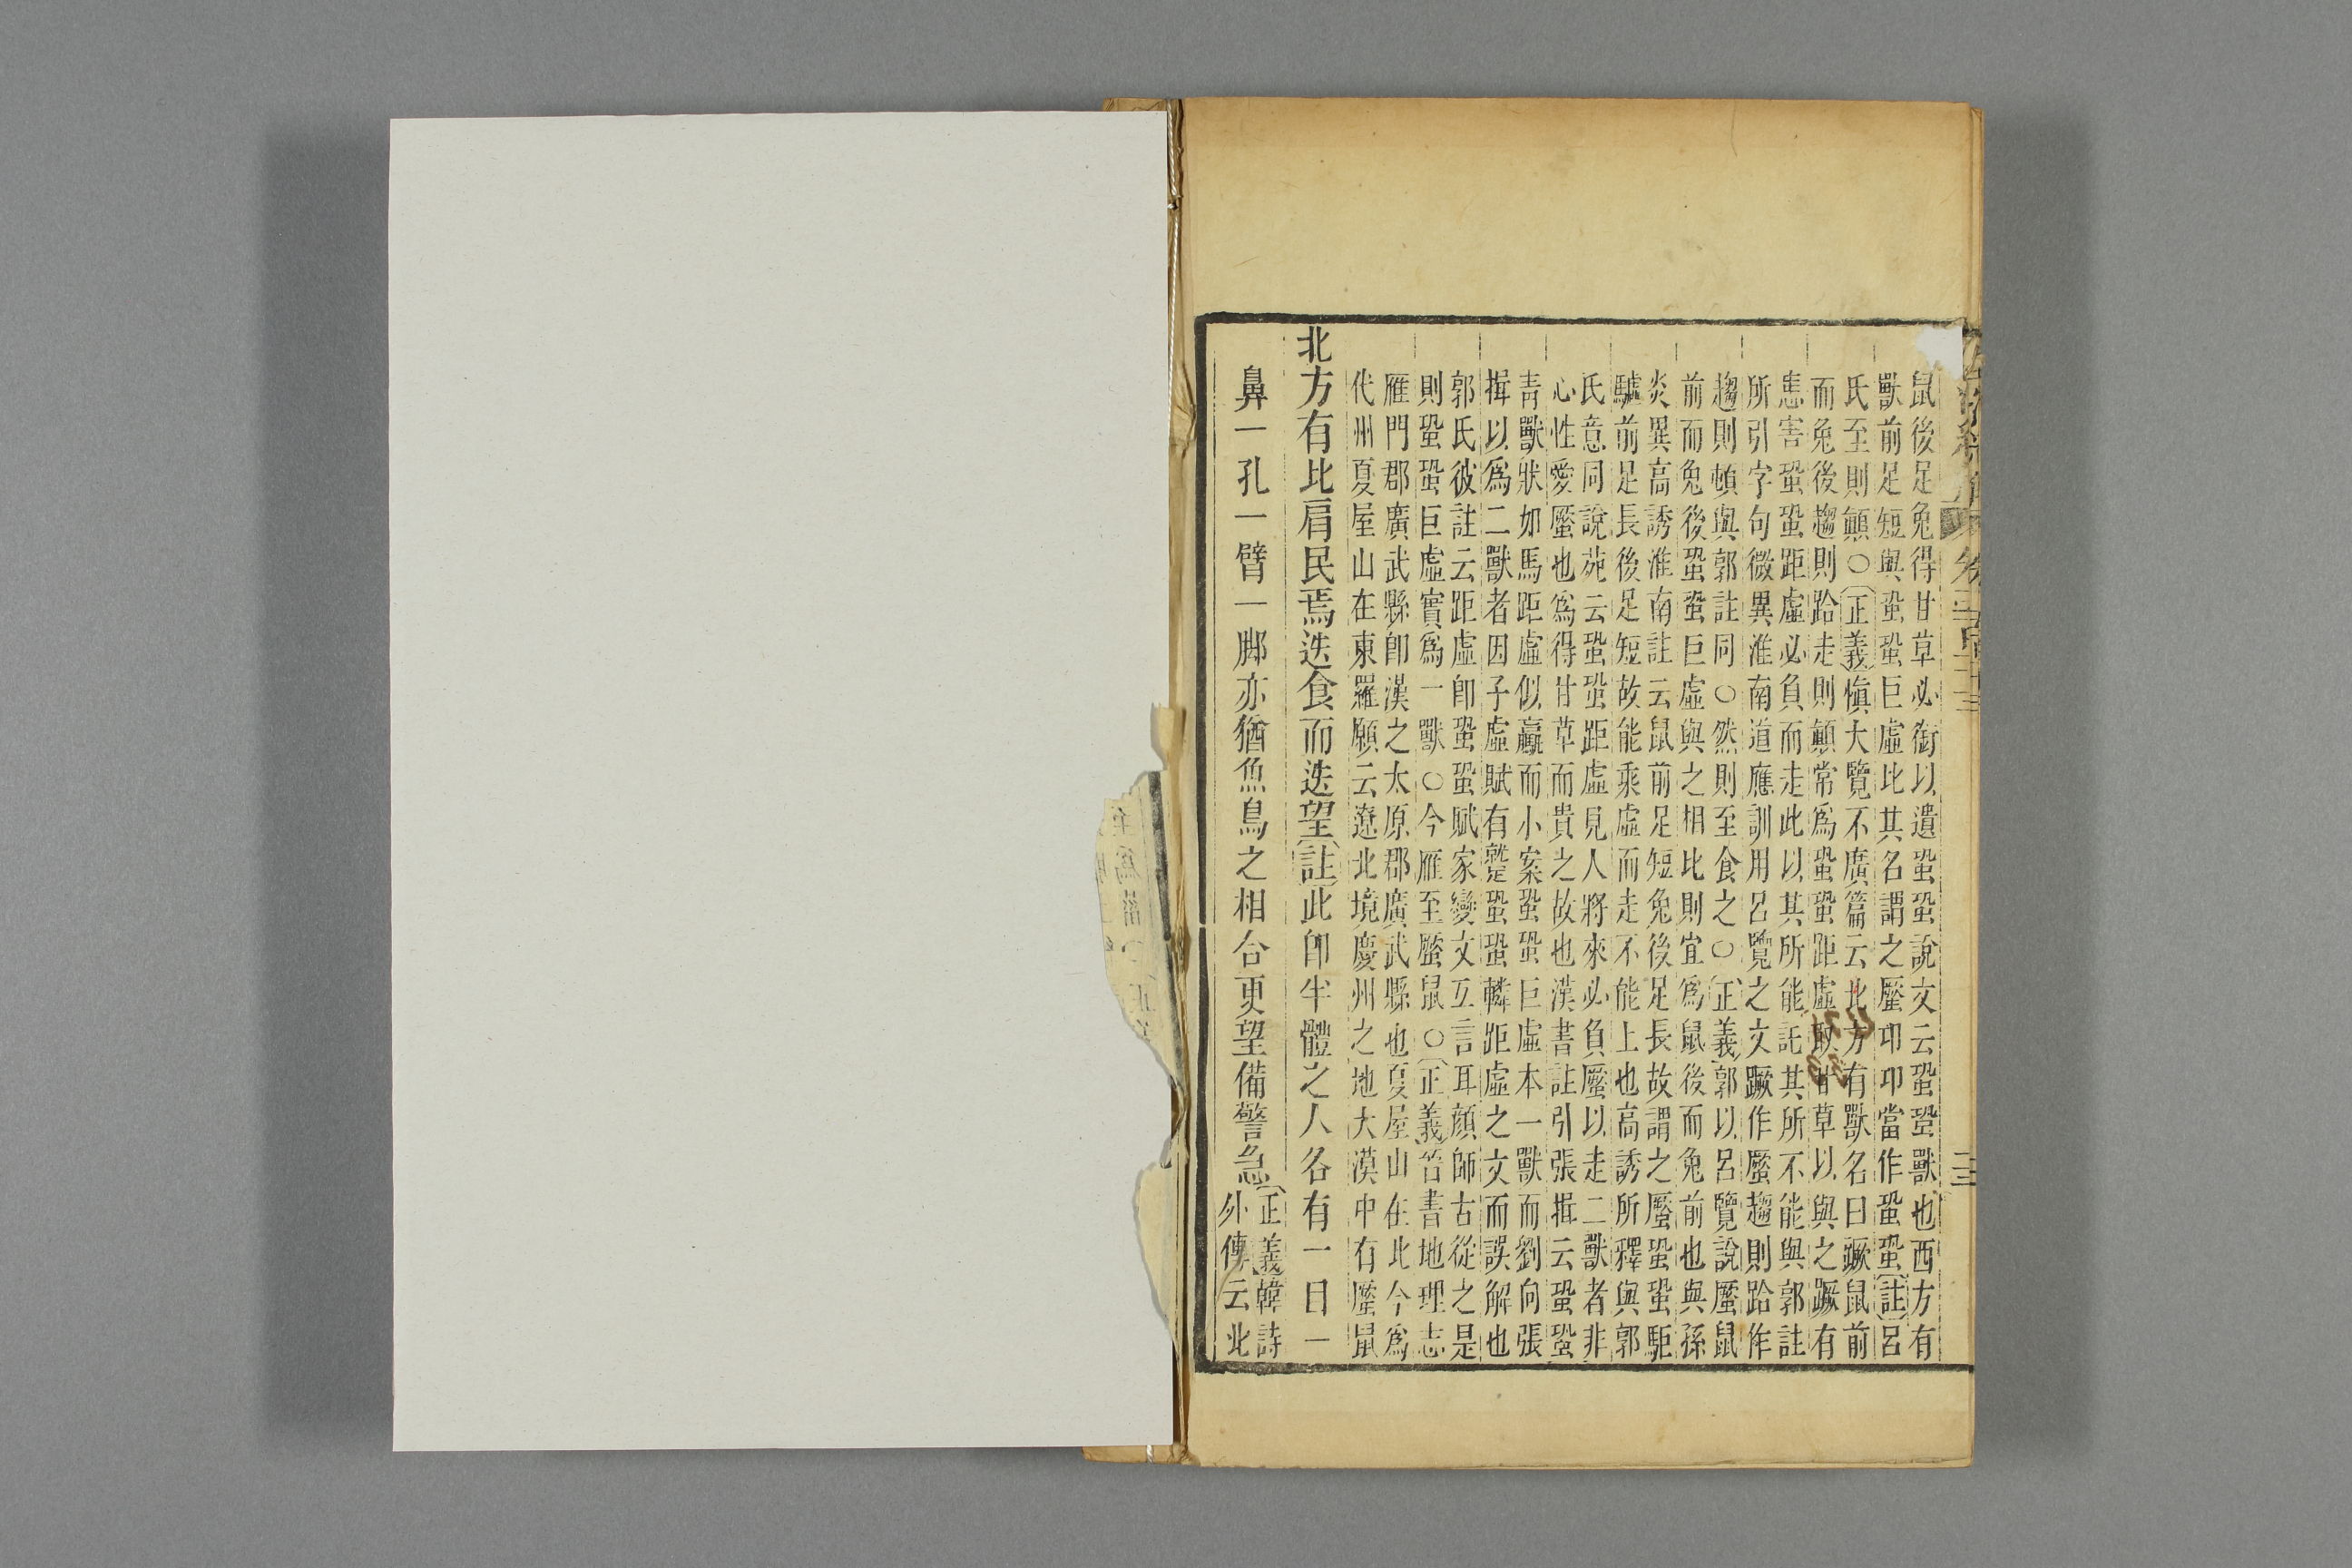 鼠後足兔得甘草必銜以遺蛩蛩說文云蛩蛩獸也西方有
獸前足短與蛩蛩巨虛比其名謂之蟨卭卭當作蛩蛩註呂
氏至則顚○正義愼大覽不廣篇云北方有獸名曰蹶鼠前
而兔後趨則跲走則顚常爲蛩蛩距虛取甘草以與之蹶有
患害蛩蛩距虛必負而走此以其所能託其所不能與郭註
所引字句微異淮南道應訓用呂覽之文蹶作蟨趨則跲作
趨則頓與郭註同○然則至食之○正義郭以呂覽說蟨鼠
前而兔後蛩蛩巨虛與之相比則宜爲鼠後而兔前也與孫
炎異高誘淮南註云鼠前足短兔後足長故謂之蟨蛩蛩駏
驉前足長後足短故能乘虛而走不能上也高誘所釋與郭
氏意同說苑云蛩蛩距虛見人將來必負蟨以走二獸者非
心性愛蟨也爲得甘草而貴之故也漢書註引張揖云蛩蛩
靑獸狀如馬距虛似驘而小案蛩蛩巨虛本一獸而劉向張
揖以爲二獸者因子虛賦有蹵蛩蛩轔距虛之文而誤解也
郭氏彼註云距虛卽蛩蛩賦家變文互言耳顏師古從之是
則蛩蛩巨虛實爲一獸○今雁至蟨鼠○正義晉書地理志
雁門郡廣武縣卽漢之太原郡廣武縣也夏屋山在此今爲
代州夏屋山在東羅願云遼北境慶州之地大漠中有蟨鼠
北方有比肩民焉迭食而迭望註此卽半體之人各有一目一
鼻一孔一臂一脚亦猶魚鳥之相合更望備警急正義韓詩
外傳云北